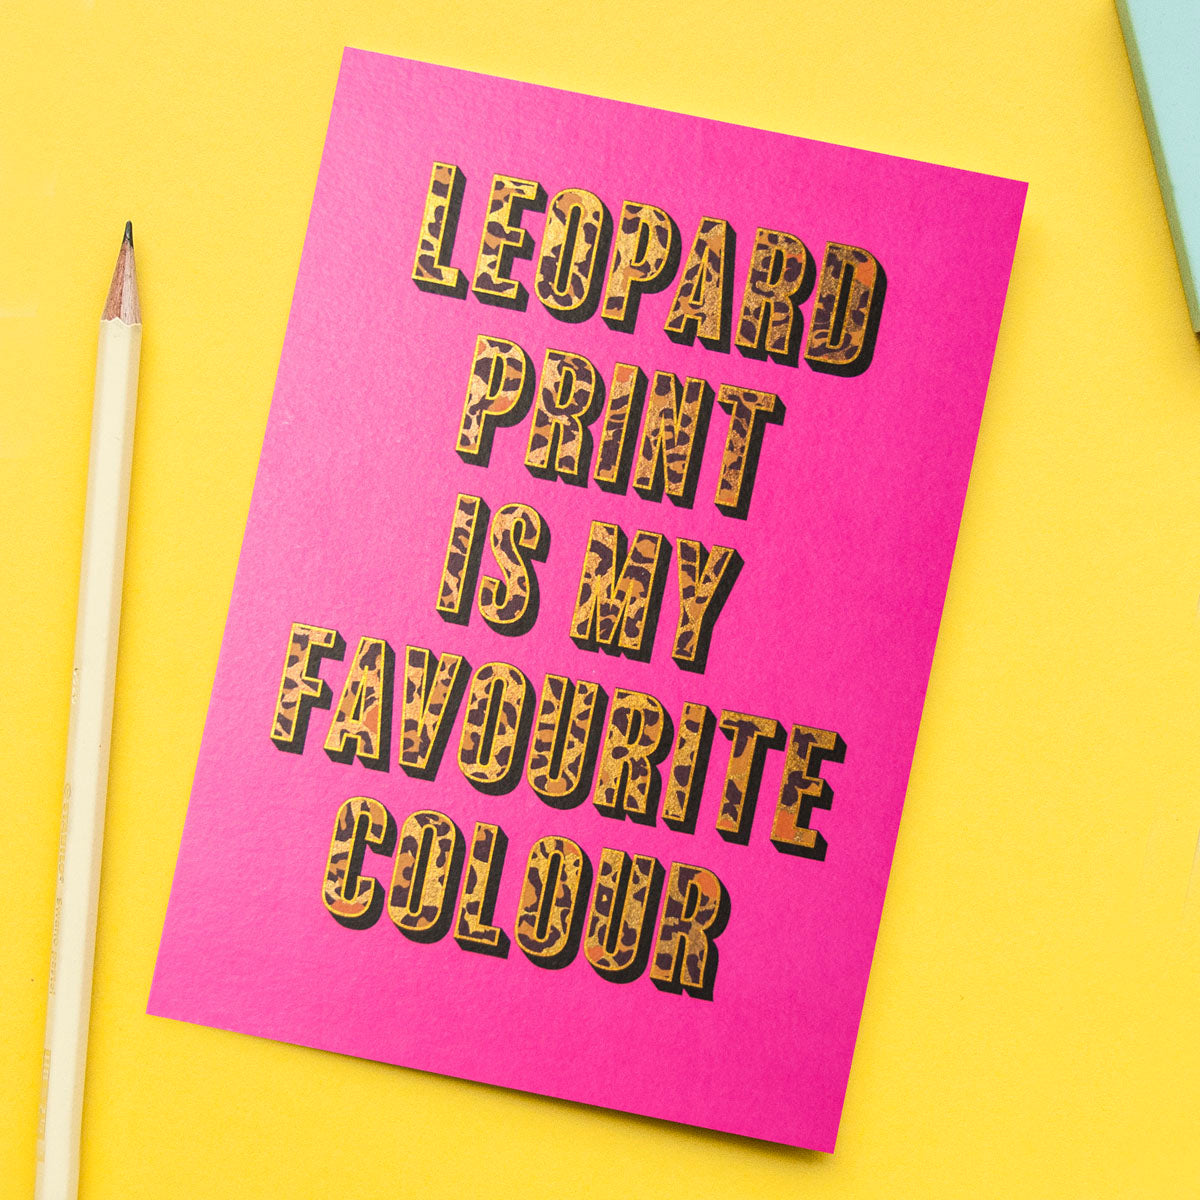 LEOPARD
PRINT
IS MY
FAVOURITE
COLOUR